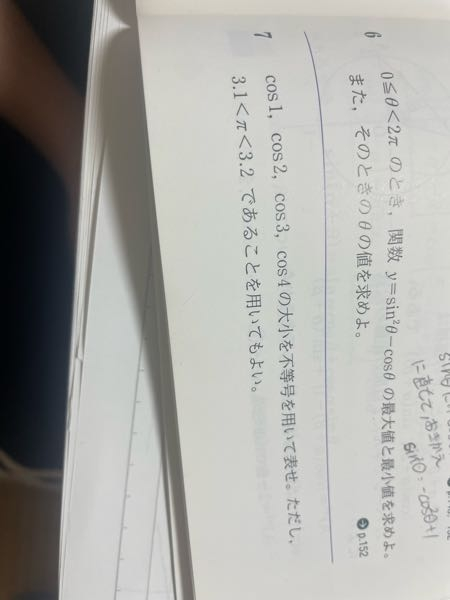 に直しておきかえ
sin²θ=-cos²θ+1
6 0≦θ<2π のとき，関数 y=sin²θ-cosθ の最大値と最小値を求めよ。
また，そのときのθの値を求めよ。
p.152
7 cos1，cos2，cos3，cos4の大小を不等号を用いて表せ。ただし，
3.1<π<3.2 であることを用いてもよい。